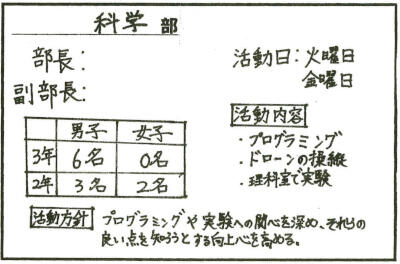 科学 部
部長:
副部長:
活動日:火曜日
金曜日
男子 女子
3年 6名 0名
2年 3名 2名
活動内容
・プログラミング
・ドローンの操縦
・理科室で実験
活動方針 プログラミングや実験への関心を深め、それらの
良い点を知ろうとする向上心を高める。